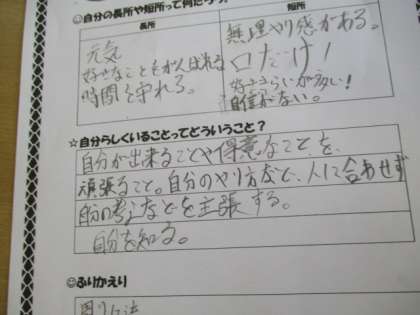 ☺自分の長所や短所って何だろう?
長所
短所
元気
好きなことをがんばれる
時間を守れる。
無理やり感がある。
口だけ!
好ききらいが多い!
自信がない。
☆自分らしくいることってどういうこと?
自分が出来ることや得意なことを、
頑張ること。自分のやり方など、人に合わせず
自分の考えなどを主張する。
自分を知る。
☺ふりかえり